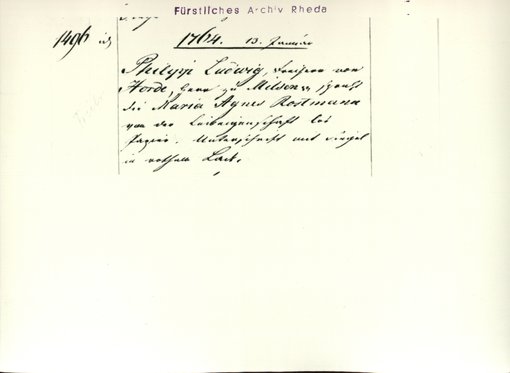 Fürstliches Archiv Rheda
1496
1764. 13. Januar
Philipp Ludwig, Freiherr von
Hörde, Herr zu
die Maria Agnes Rostmann
von der Leibeigenschaft los
Papier. Unterschrift mit Siegel
in rothem Lack.